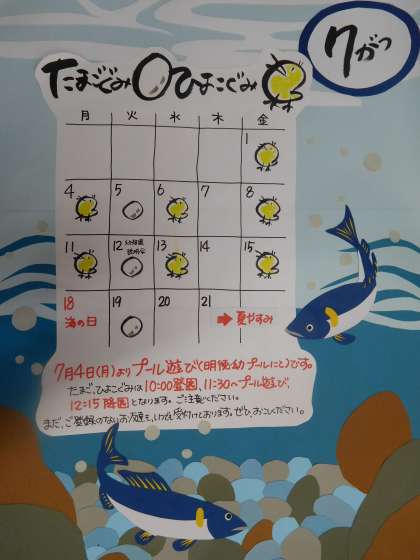 7がつ
たまごぐみ ひよこぐみ
月 火 水 木 金
1
4 5 6 7 8
11 12 幼稚園説明会 13 14 15
18 海の日 19 20 21 → 夏やすみ
7月4日(月)よりプール遊び(明照幼プールにて)です。
たまご、ひよこぐみは10:00登園、11:30〜プール遊び、
12:15降園となります。ご注意ください。
まだ、ご登録のないお友達も、いつでも受付けております。ぜひ、おこしください。